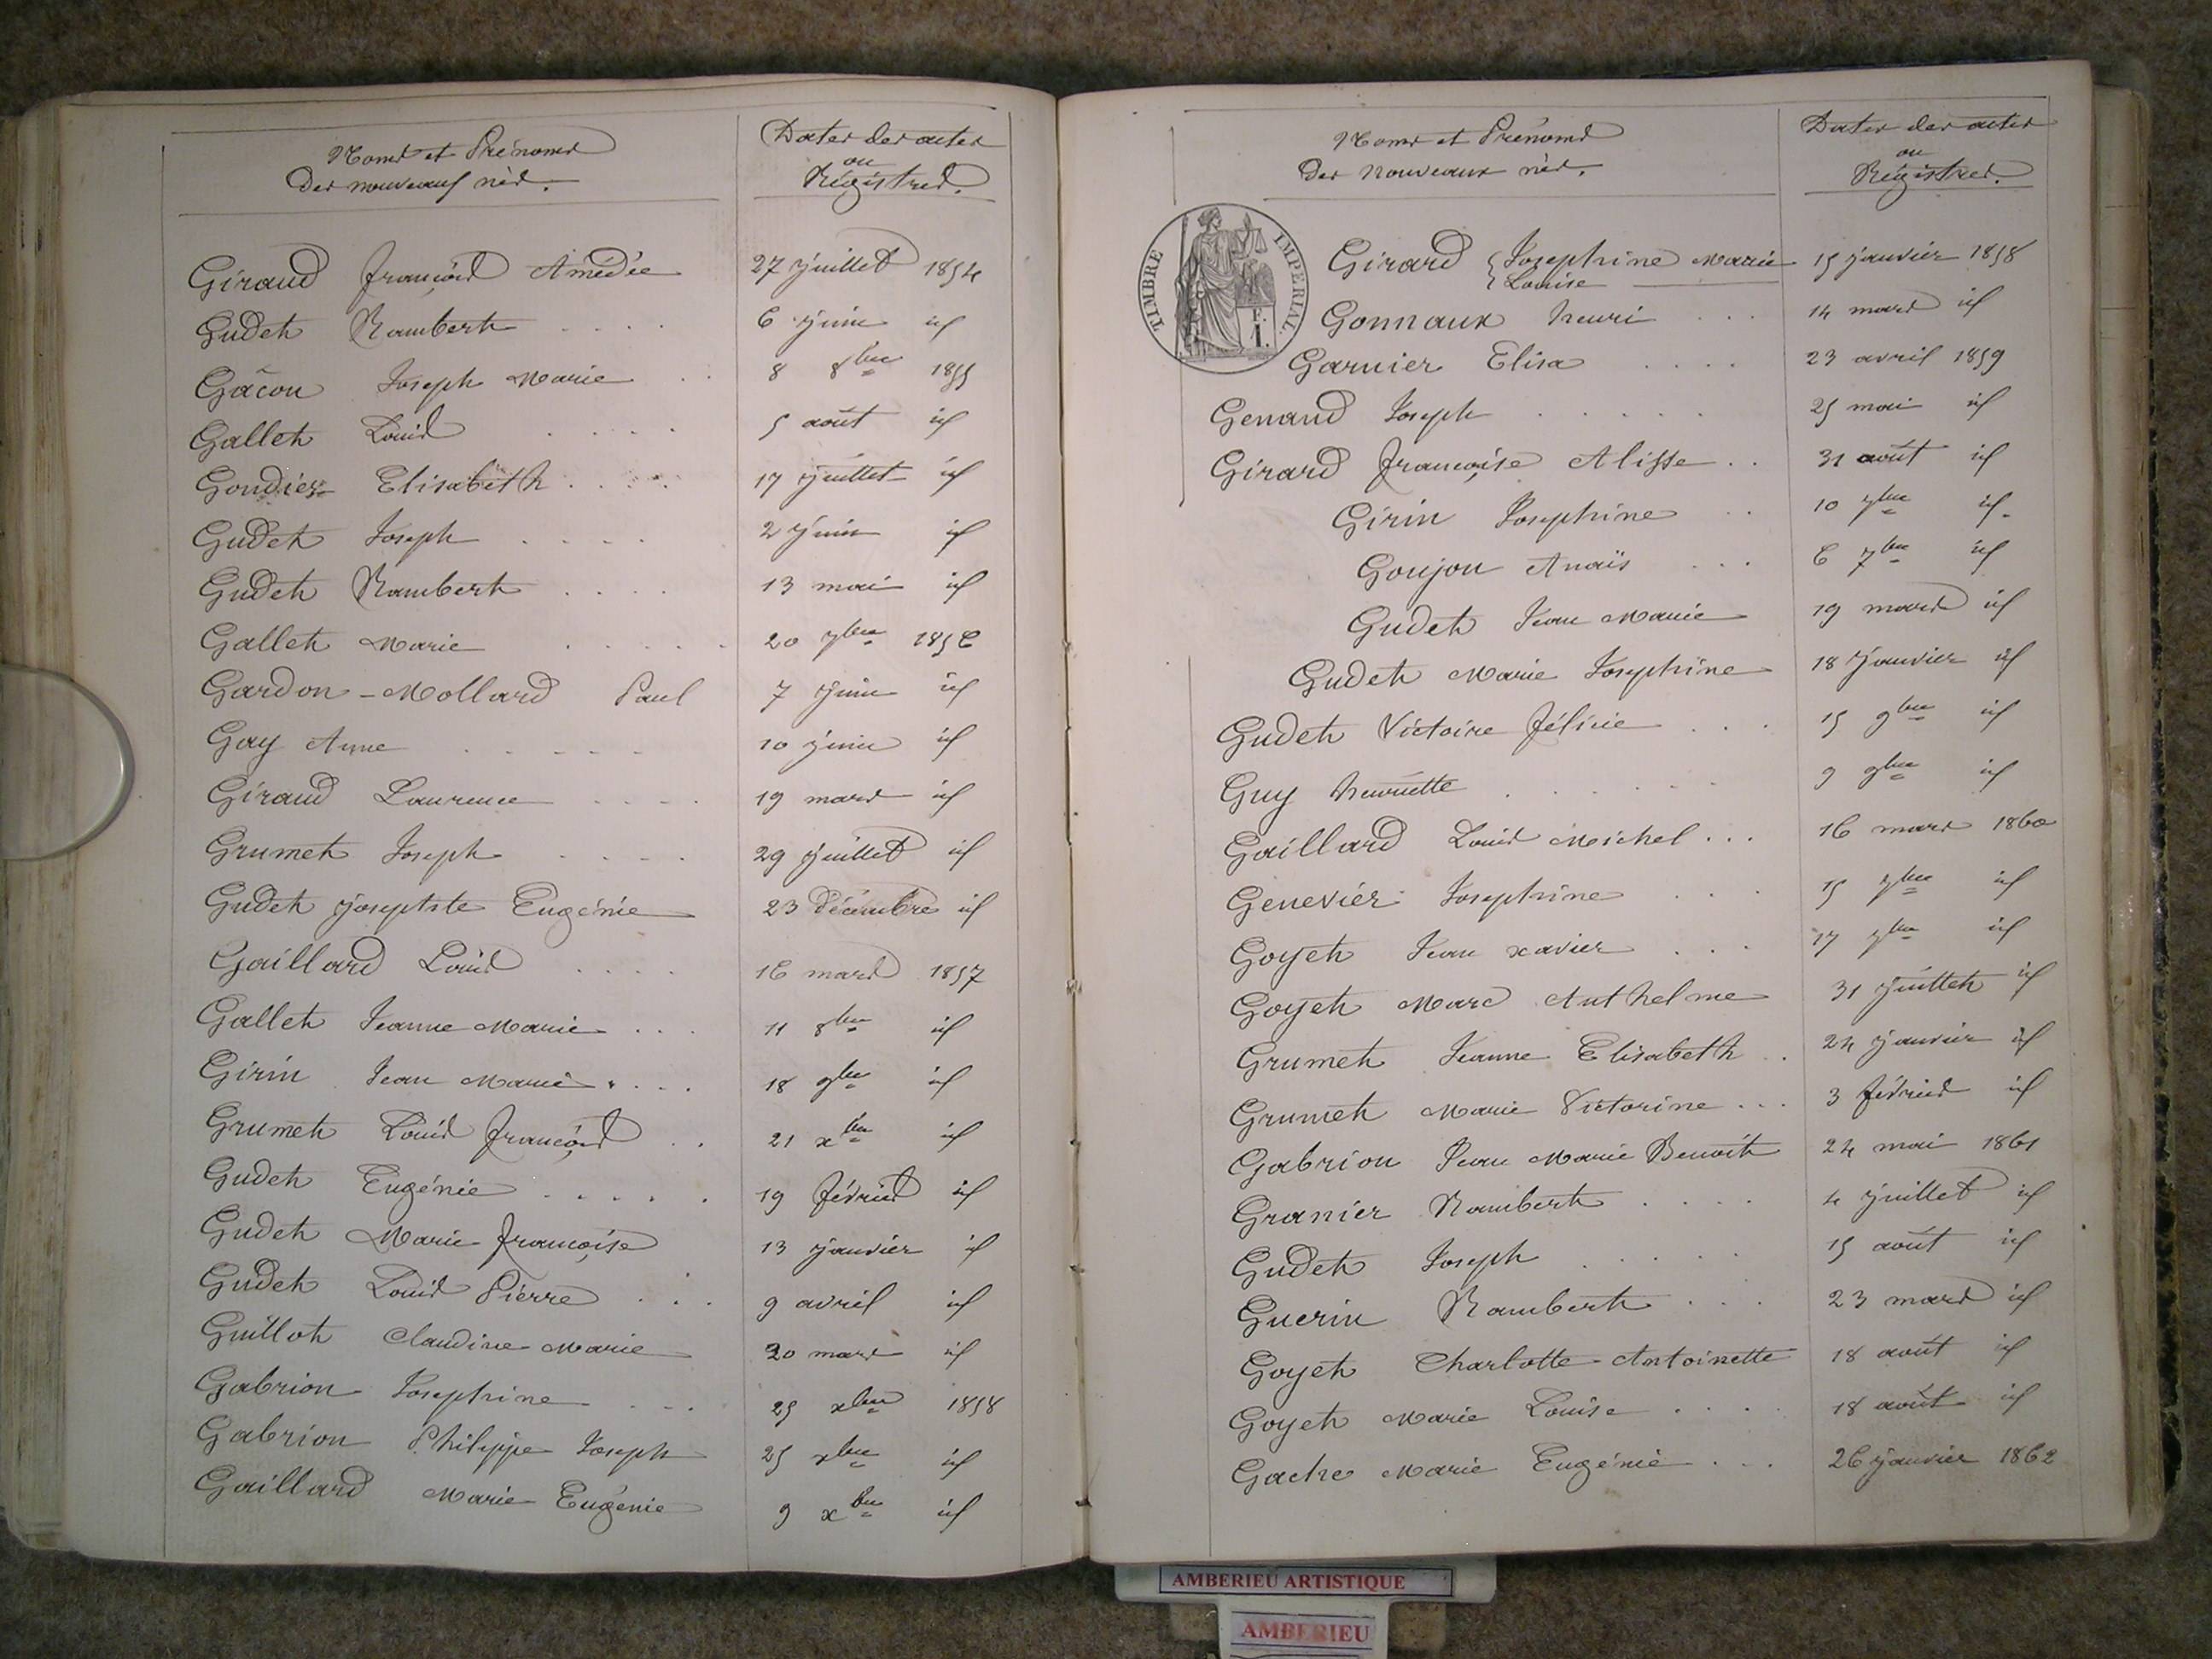 Noms et Prénoms
Des nouveaux nés.
Dates des actes
ou
Régistres.
Giraud François Amédée 27 juillet 1854
Gudet Rambert .... 6 juin id
Gâcon Joseph Marie .. 8 8bre 1855
Gallet Louis .... 5 août id
Gondier Elisabeth .... 17 juillet id
Gudet Joseph .... 2 juin id
Gudet Rambert .... 13 mai id
Gallet Marie ..... 20 7bre 1856
Gardon-Mollard Paul 7 juin id
Gay Anne ..... 10 juin id
Giraud Laurence .... 19 mars id
Grumet Joseph .... 29 juillet id
Gudet Josephte Eugénie 23 Décembre id
Gaillard Louis .... 16 mars 1857
Gallet Jeanne Marie ... 11 8bre id
Girin Jean Marie .... 18 9bre id
Grumet Louis François .. 21 xbre id
Gudet Eugénie ..... 19 février id
Gudet Marie Françoise 13 janvier id
Gudet Louis Pièrre ... 9 avril id
Guillot Claudine Marie 30 mars id
Gabrion Josephine ... 25 xbre 1858
Gabrion Philippe Joseph 25 xbre id
Gaillard Marie Eugénie 9 xbre id
Noms et Prénoms
Des nouveaux nés.
Dates des actes
ou
Régistres.
TIMBRE IMPÉRIAL.
Girard { Josephine Marie 15 janvier 1858
{ Louise
Gonnaux henri ... 14 mars id
Garnier Elisa .... 23 avril 1859
Genaud Joseph ..... 25 mai id
Girard Françoise Alisse .. 31 août id
Girin Josephine .. 10 7bre id.
Goujon Anaïs ... 6 7bre id
Gudet Jean Marie 19 mars id
Gudet Marie Josephine 18 janvier id
Gudet Victoire Félicie ... 15 9bre id
Guy henriette ...... 9 9bre id
Gaillard Louis Michel ... 16 mars 1860
Genevier Josephine ... 15 7bre id
Goyet Jean xavier ... 17 7bre id
Goyet Marc Anthelme 31 juillet id
Grumet Jeanne Elisabeth . 24 janvier id
Grumet Marie Victorine ... 3 février id
Gabrion Jean Marie Benoît 24 mai 1861
Granier Rambert .... 4 juillet id
Gudet Joseph .... 15 août id
Guerin Rambert ... 23 mars id
Goyet Charlotte Antoinette 18 août id
Goyet Marie Louise .... 18 août id
Gache Marie Eugénie ... 26 janvier 1862
AMBERIEU ARTISTIQUE
AMBERIEU